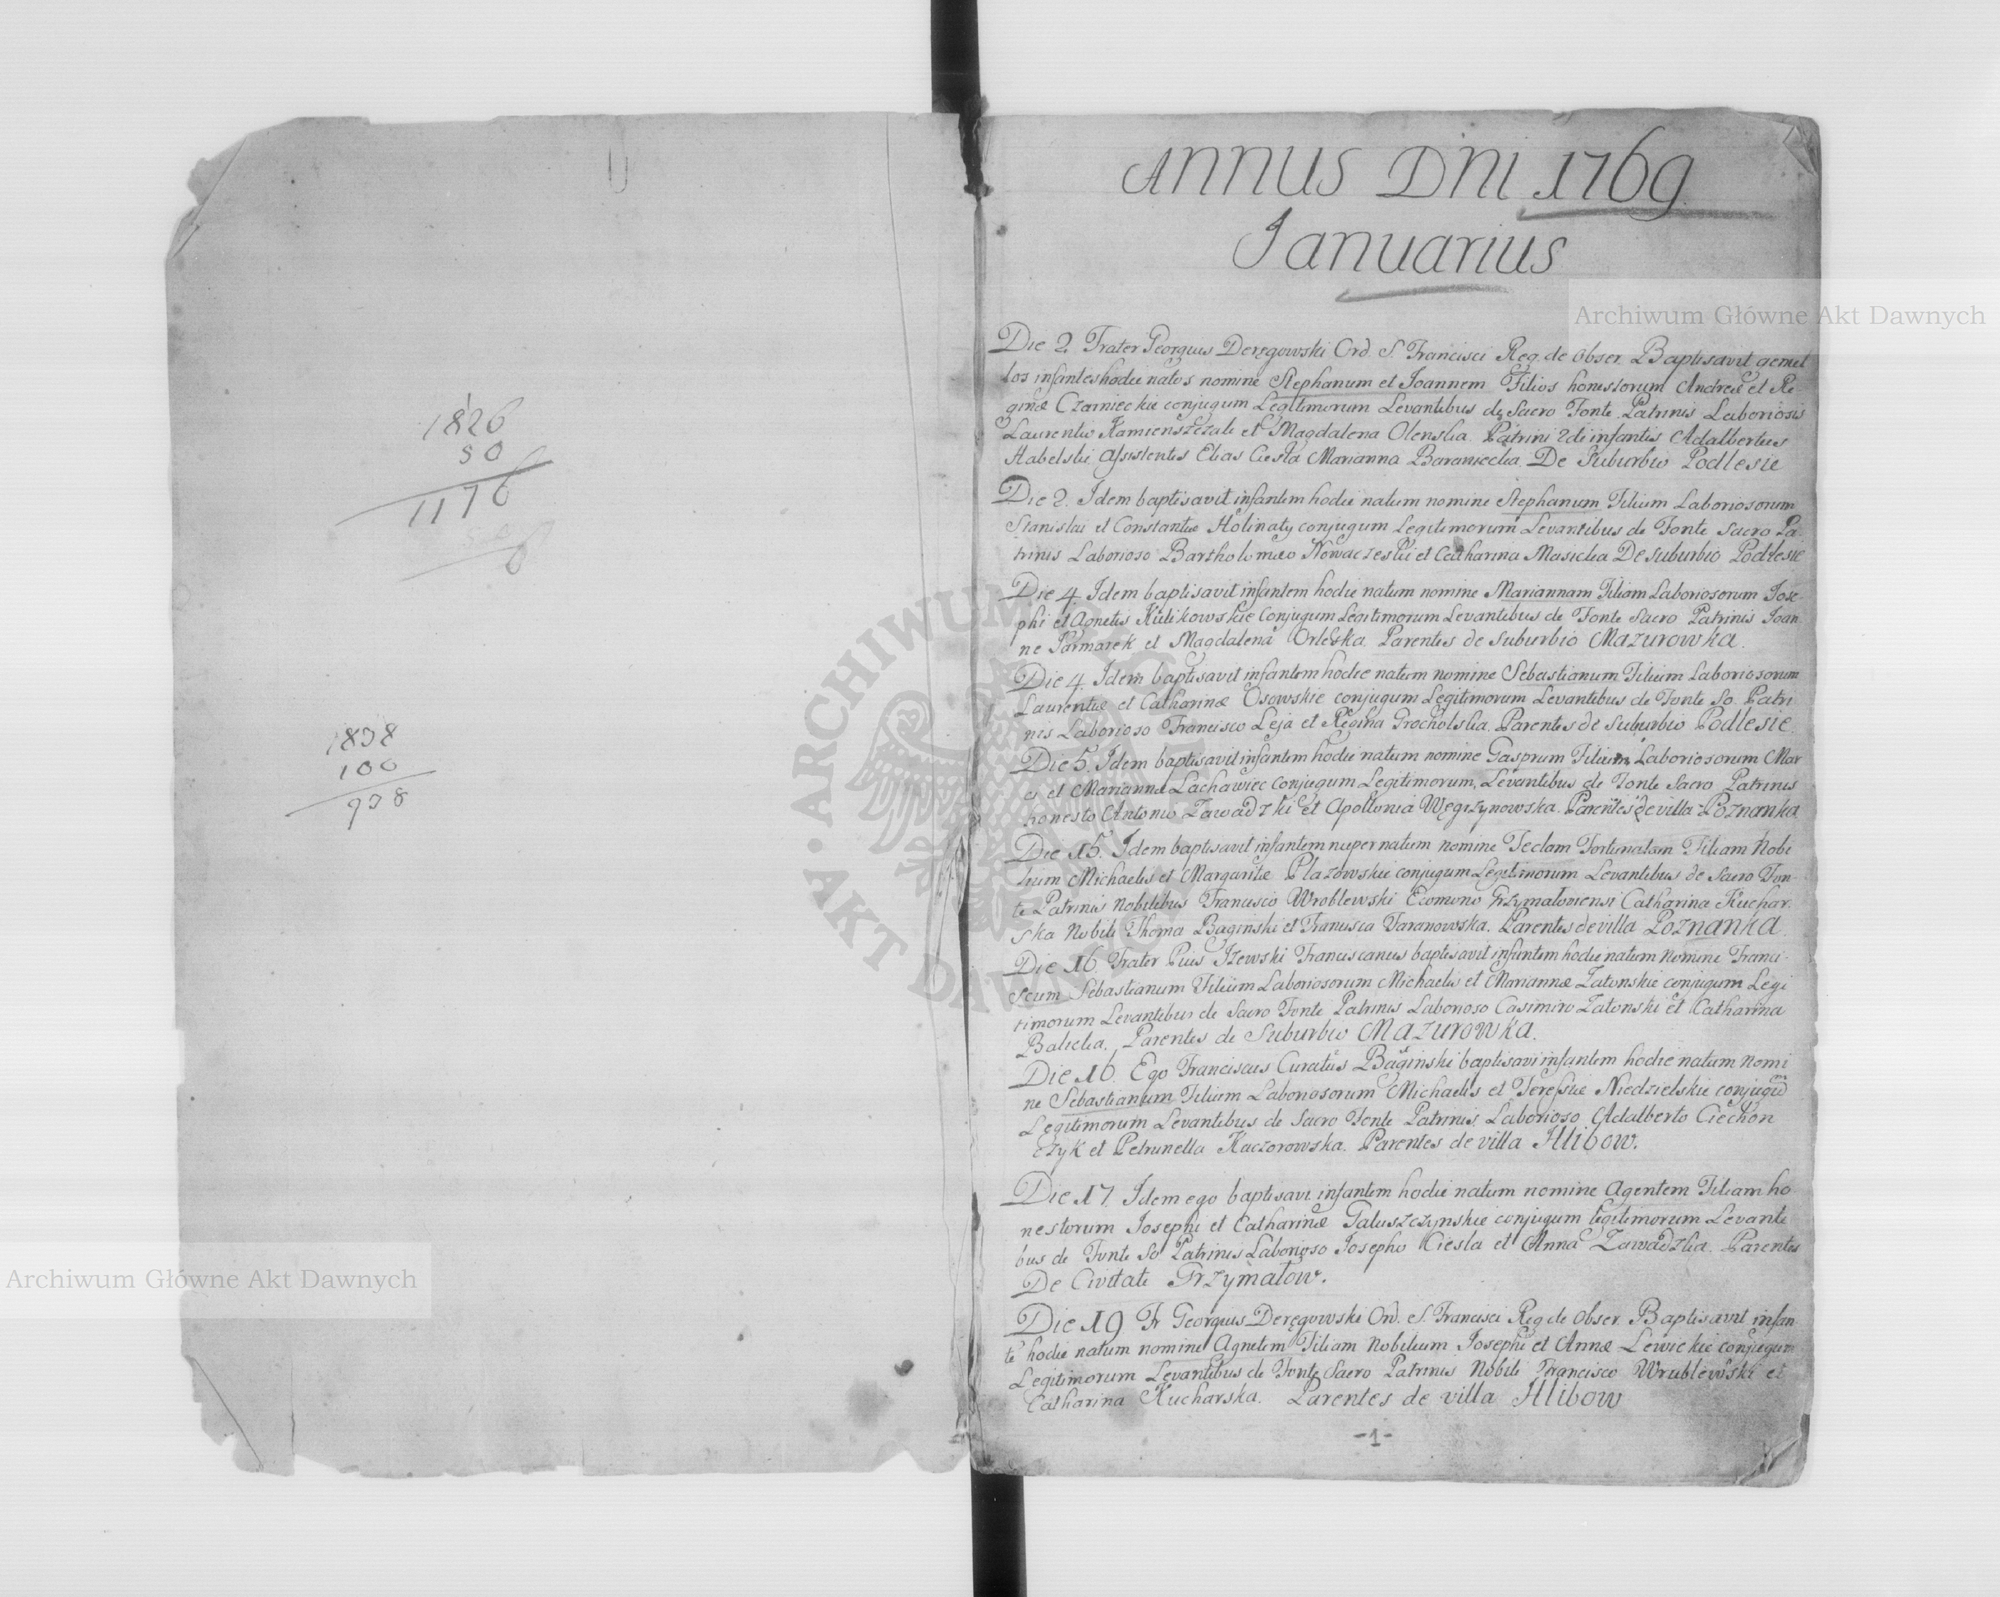 1826
50
1176
1838
100
938
ANNUS DNI 1769
Januarius
Die 2. Frater Georgius Deręgowski Ord. S. Francisci Reg. de obser. Baptisavit gemel
los infantes hodie natos nomine Stephanum et Joannem Filios honestorum Andreæ et Re
ginæ Czarnieckie conjugum Legitimorum Levantibus de Sacro Fonte Patrinis Laboriosis
Laurentio Kamienszczak et Magdalena Olenska Patrini 2di infantis Adalbertus
Habelski Assistentes Elias Ciesla Marianna Baraniecka De Suburbio Podlesie
Die 2. Idem baptisavit infantem hodie natum nomine Stephanum Filium Laboriosorum
Stanislai et Constantiæ Holinaty conjugum Legitimorum Levantibus de Fonte Sacro Pa-
trinis Laborioso Bartholomeo et Catharina Masicka De suburbio Podlesie
Die 4. Idem baptisavit infantem hodie natum nomine Mariannam Filiam Laboriosorum Jose-
phi et Agnetis Kulikowskie Conjugum Legitimorum Levantibus de Fonte Sacro Patrinis Joan-
ne Jarmarek et Magdalena Orleska Parentes de suburbio Mazurowka.
Die 4. Idem baptisavit infantem hodie natum nomine Sebastianum Filium Laboriosorum
Laurentii et Catharinæ Osowskie conjugum Legitimorum Levantibus de Fonte So. Patri
nis Laborioso Francisco Leja et Regina Grocholska Parentes de Suburbio Podlesie.
Die 5. Idem baptisavit infantem hodie natum nomine Gasprum Filium Laboriosorum Mar
ci et Mariannæ Lachawiec Conjugum Legitimorum, Levantibus de Fonte Sacro Patrinis
honesto Antonio Zawadzki et Apollonia Węgrzynowska. Parentes de villa Poznanka
Die 15. Idem baptisavit infantem nuper natum nomine Teclam Fortunatam Filiam Nobi
lium Michaelis et Margaritæ Plazowskie conjugum Legitimorum Levantibus de Sacro Fon-
te Patrinis Nobilibus Francisco Wroblewski Economo Grzymaloviensi Catharina Kuchar-
ska Nobili Thoma Baginski et Francisca Taranowska. Parentes de villa Poznanka.
Die 16. Frater Pius Izewski Franciscanus baptisavit infantem hodie natum Nomine Franci-
scum Sebastianum Filium Laboriosorum Michaelis et Mariannæ Zatonskie conjugum Legi
timorum Levantibus de Sacro Fonte Patrinis Laborioso Casimiro Zatonski et Catharina
Balicka. Parentes de Suburbio Mazurowka.
Die 16. Ego Franciscus Curatus Baginski baptisavi infantem hodie natum nomi
ne Sebastianum Filium Laboriosorum Michaelis et Teressiæ Niedzielskie conjugum
Legitimorum Levantibus de Sacro Fonte Patrinis Laborioso Adalberto Ciechon
czyk et Petrunella Kaczorowska. Parentes de villa Hlibow.
Die 17. Idem ego baptisavi infantem hodie natum nomine Agentem Filiam ho
nestorum Josephi et Catharinæ Galuszczynskie conjugum legitimorum Levanti
bus de Fonte So Patrinis Laborioso Josepho Ciesla et Anna Zawadzka Parentes
De Civitate Grzymalow.
Die 19 Fr Georgius Deręgowski Ord. S. Francisci Reg de obser. Baptisavit infan
te hodie natum nomine Agnetem Filiam Nobilium Josephi et Annæ Lewickie conjugum
Legitimorum Levantibus de Fonte Sacro Patrinis Nobili Francisco Wrublewski et
Catharina Kucharska. Parentes de villa Hlibow
-1-
Archiwum Główne Akt Dawnych
Archiwum Główne Akt Dawnych
ARCHIWUM GŁÓWNE · AKT DAWNYCH ·